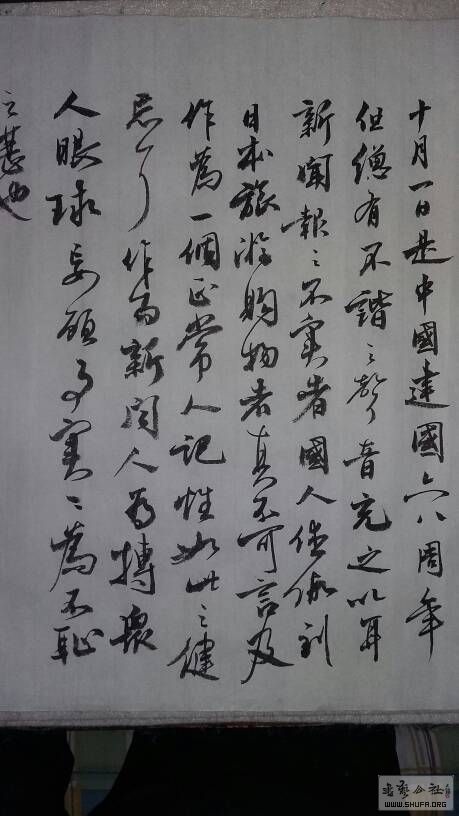 十月一日是中國建國六八周年
但總有不諧之聲音充之以耳
新聞報之不實者國人坐飛到
日本旅游購物者真不可言及
作為一個正常人記性如此之健
忘了作為新闻人為搏衆
人眼球妄顾事實之為不耻
之甚也
書藝公社
WWW.SHUFA.ORG